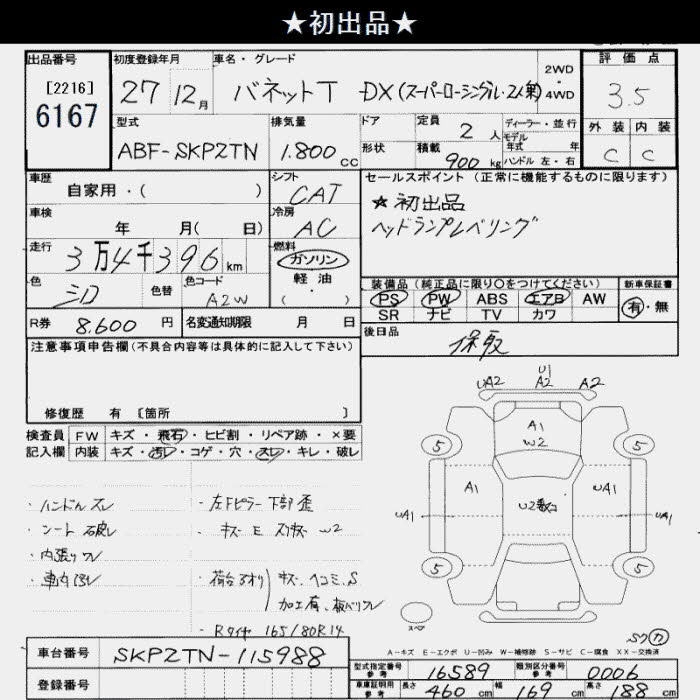 ★初出品★
出品番号 初度登録年月 車名・グレード 評価点
[2216]
6167
27 12月 バネットT DX(スーパーローシングル・2人乗) 2WD・4WD 3.5
型式 排気量 ドア 定員 2人 ディーラー・並行 外装 内装
モデル年式 年式
ABF-SKP2TN 1.800cc 形状 積載 900kg ハンドル 左・右 C C
車歴 シフト セールスポイント(正常に機能するものに限ります)
自家用・( ) CAT ★初出品
車検 冷房 ヘッドランプレベリング
年 月( 日) AC
走行 燃料
3万4千396km ガソリン
軽油
( ・ )
色 色替 色コード 装備品(純正品に限り○をつけてください) 新車保証書
シロ A2W PS PW ABS エアB AW 有・無
SR ナビ TV カワ
R券 8.600円 名変通知期限 月 日 後日品
保取
注意事項申告欄(不具合内容等は具体的に記入して下さい)
修復歴 有 [箇所 ]
検査員 FW キズ・飛石・ヒビ割・リペア跡・×要
記入欄 内装 キズ・汚レ・コゲ・穴・スレ・キレ・破レ
・ハンドルスレ
・シート破レ
・内張りワレ
・車内汚レ
・左Fピラー下部歪
キズ E スリキズ W2
・荷台アオリ キズ、ヘコミ、S
加工有、板バリワレ
・Rタイヤ 165/80R14
UA2 U1 A2 A2
A1
W2
5 5
A1 A1
UA1 UA1
5 5
スペア
A-キズ E-エクボ U-凹み W-補修跡 S-サビ C-腐食 XX-交換済
車台番号 SKP2TN-115988
登録番号
型式指定番号 参考 16589 類別区分番号 参考 0006
車庫証明用 参考 長さ 460cm 幅 169cm 高さ 188cm